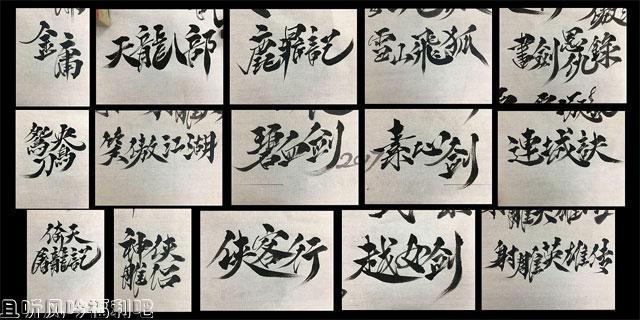 金庸
天龍八部
鹿鼎記
雪山飛狐
書劍恩仇錄
鴛鴦刀
笑傲江湖
碧血剑
2017
素心剑
連城訣
倚天
屠龍記
神雕
俠侣
俠客行
越女剑
射雕英雄传
且听风吟福利吧